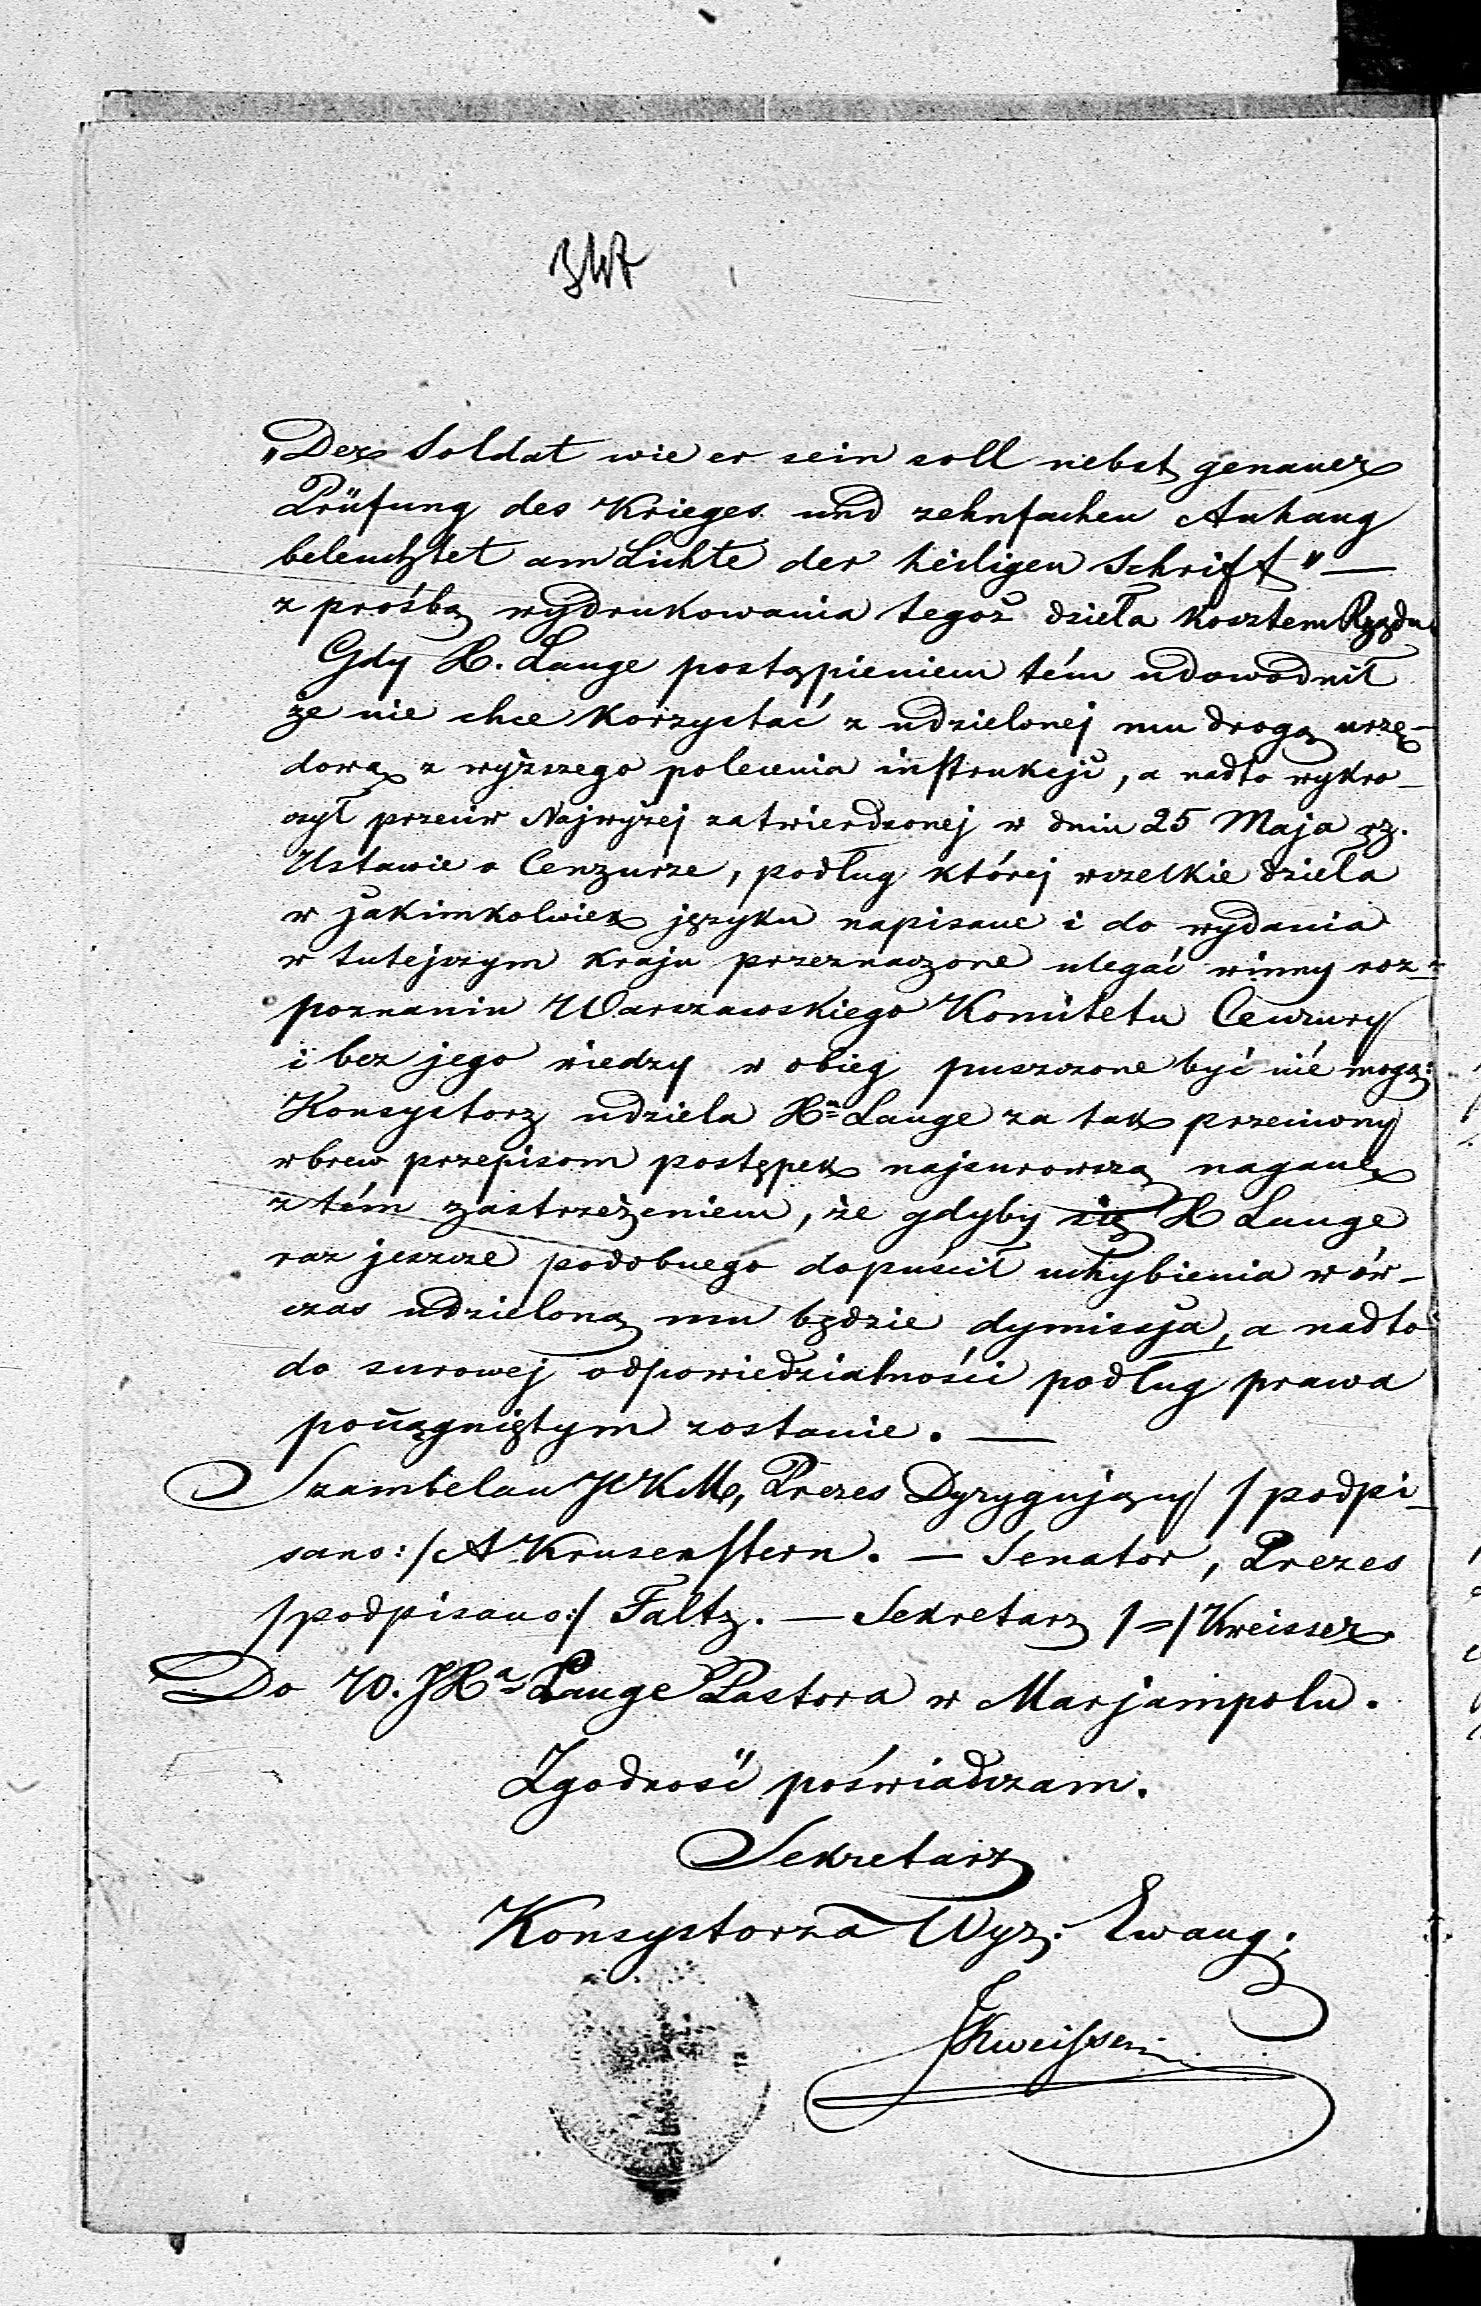 „Der Soldat wie er sein soll nebst genauer
Prüfung des Krieges und zehnfachen Anhang
beleuchtet am Lichte der heiligen Schrift" —
z prośbą wydrukowania tegoż dzieła kosztem Rządu.
Gdy X. Lange postąpieniem tém udowodnił
że nie chce korzystać z udzielonej mu drogą urzę-
dową z wyższego polecenia instrukcji, a nadto wykro-
czył przeciw Najwyżej zatwierdzonej w dniu 25 Maja rz.
Ustawie o Cenzurze, podług której wszelkie dzieła
w jakimkolwiek języku napisane i do wydania
w tutejszym kraju przeznaczone ulegać winny roz-
poznaniu Warszawskiego Komitetu Cenzury
i bez jego wiedzy w obieg puszczone być nié mogą:
Konsystorz udziela Xu Lange za tak przeciwny
wbrew przepisom postępek najsurowszą naganę
z tém zastrzeżeniem, że gdyby się X Lange
raz jeszcze podobnego dopuścił uchybienia wów-
czas udzieloną mu będzie dymissja, a nadto
do surowej odpowiedzialności podług prawa
pociągniętym zostanie. —
Szambelan JKM, Prezes Dyrygujący /podpi-
sano:/ A Krusenstern. — Senator, Prezes
/podpisano:/ Faltz. — Sekretarz /=/ Kweisser
Do W. JXa Lange Pastora w Marjampolu.
Zgodność poświadczam.
Sekretarz
Konsystorza Wyz: Ewang:
Kweisser